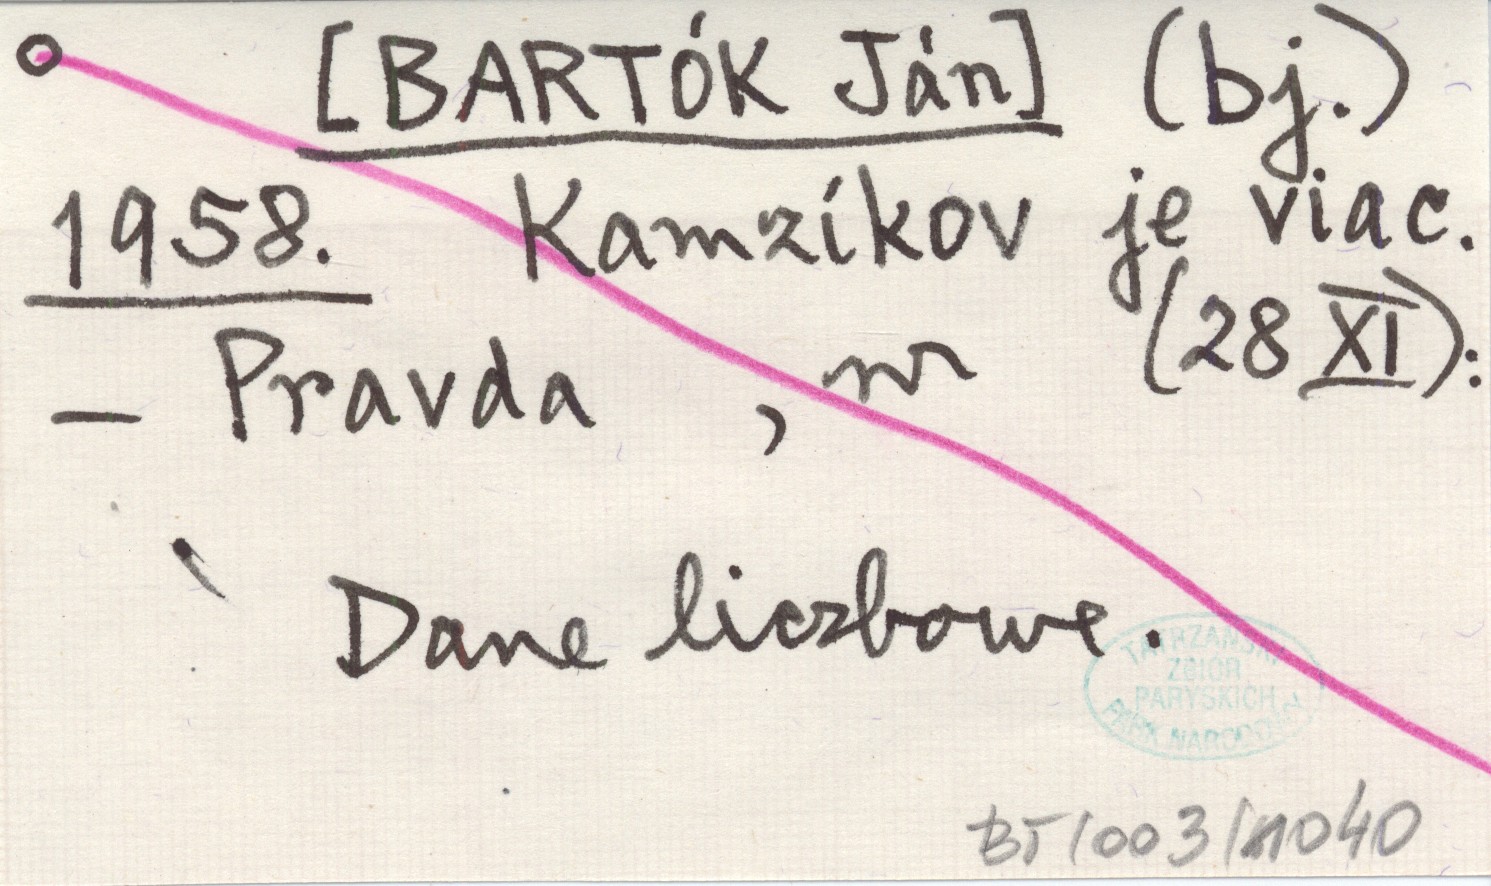 [BARTÓK Ján] (bj.)
1958. Kamzíkov je viac.
– Pravda , nr (28 XI):
Dane liczbowe.
TATRZAŃSKI
ZBIOR
PARYSKICH
PARK NARODOWY
BT/003/11040